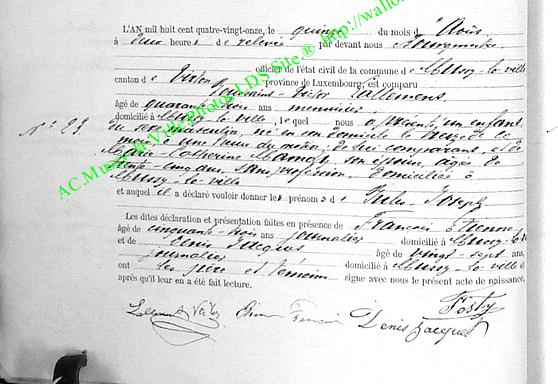 L'AN mil huit cent quatre-vingt-onze, le quinze du mois d'Août
à deux heures de relevée par devant nous Bourgmestre
officier de l'état civil de la commune de Mussy-la-ville
canton de Virton province de Luxembourg, est comparu
Toussaint-Victor Lallemens,
âgé de quarante ans menuisier
domicilié à Mussy-la-ville, lequel nous a présenté un enfant
N° 29
du sexe masculin, né en son domicile le treize de ce
mois à une heure du matin, de lui comparant, et de
Marie-Catherine son épouse, âgée de
trente-cinq ans, sans profession, domiciliée à
Mussy-la-ville
et auquel il a déclaré vouloir donner les prénoms de Jules-Joseph
Les dites déclaration et présentation faites en présence de François Etienne
âgé de cinquante-trois ans journalier domicilié à Mussy-la-v
et de Denis Jacques âgé de vingt-sept ans
journalier domicilié à Mussy-la-ville
ont les père et témoins signé avec nous le présent acte de naissance,
après qu'il leur en a été fait lecture.
Fosty
Denis Jacques
AC.Mussy-la-Ville Photos LDS Site ® http://wallo